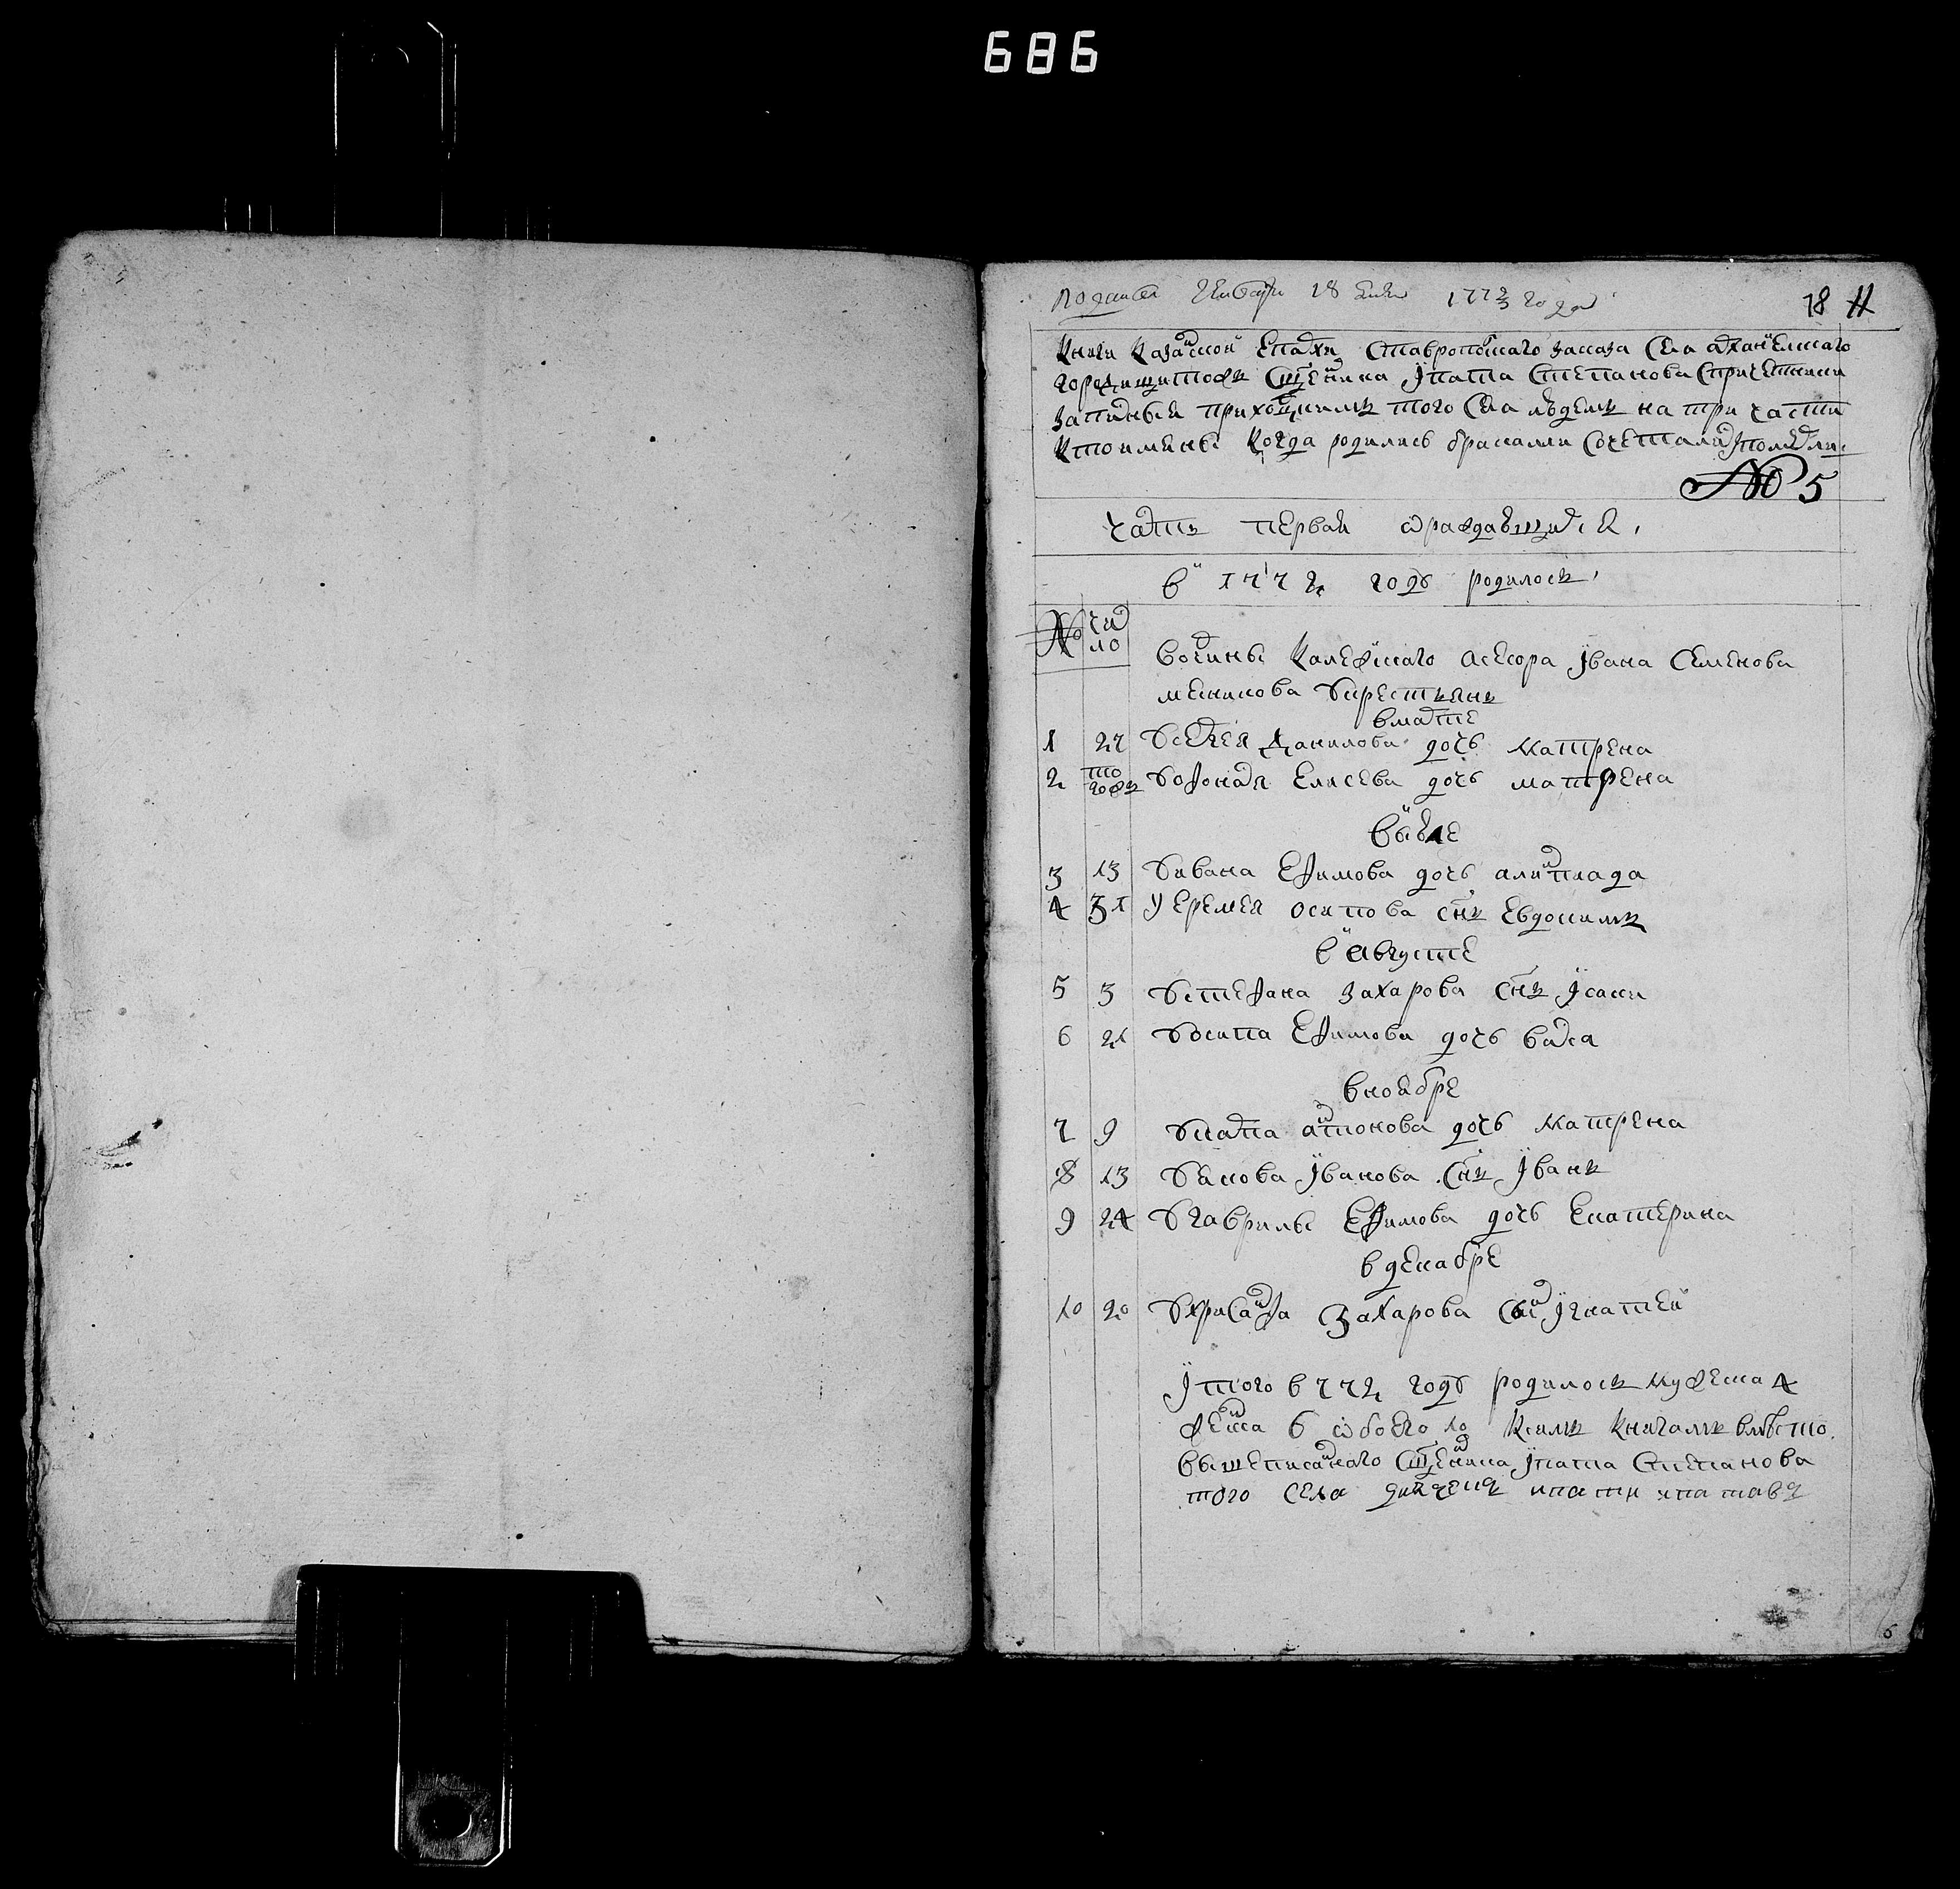 686
Поданы Генваря 18 дня 1773 года
18 11
Книги Казанской Епархи Ставропольскаго заказа Села архангелскаго
городищи тожъ Священика Ипата Степанова Спричетники
запидныя приходцкимъ того Села людемъ на три части
Кто имяны Когда родились браками Сочетались и померли
№ 5
часть первая о раждающихся
в 1772 годѣ родилось
№ число
вотчины Калежскаго асесора Ивана Семенова
меникова у крестьянъ
в марте
1 27 У сергея Данилова дочь Матрена
2 того ж У афонася Елисева дочь матрена
в июле
3 13 У ивана Ефимова дочь алимпиада
4 31 У еремея осипова снъ Евдокимъ
в августе
5 3 У степана Захарова Снъ Исаки
6 21 У осипа Ефимова дочь васса
в ноябре
7 9 У ипата антонова дочь Матрена
8 13 У якова Иванова Снъ Иванъ
9 24 У гаврилы Ефимова дочь Екатерина
в декабре
10 20 У хрисанфа Захарова Снъ Игнатей
Итого в 772 годѣ родилось мужеска 4
женска 6 обоего 10 К симъ Книгамъ вмѣсто
вышеписаннаго Священика Ипата Степанова
того Села дьячекъ
6